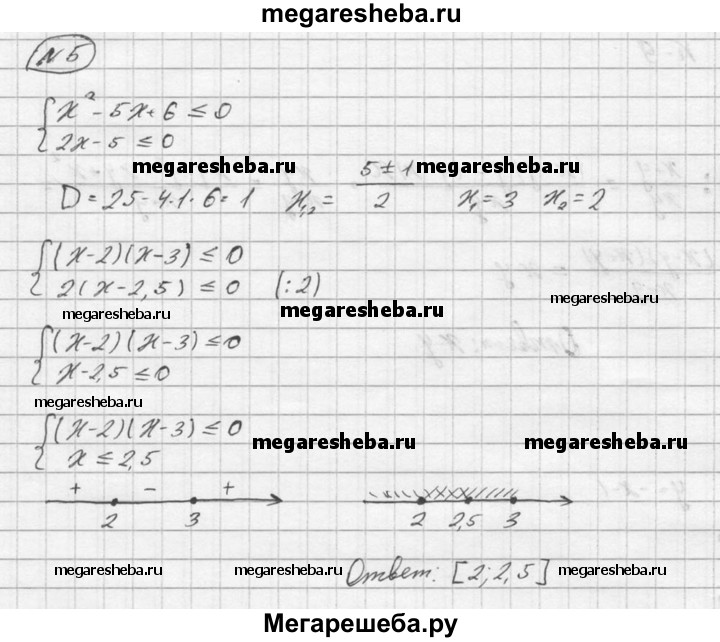 megaresheba.ru
№5
{ x² - 5x + 6 ≤ 0
2x - 5 ≤ 0
megaresheba.ru megaresheba.ru
D = 25 - 4·1·6 = 1 x₁,₂ = (5 ± 1)/2 x₁ = 3 x₂ = 2
{ (x-2)(x-3) ≤ 0
2(x-2,5) ≤ 0 (:2)
megaresheba.ru megaresheba.ru megaresheba.ru
{ (x-2)(x-3) ≤ 0
x-2,5 ≤ 0
megaresheba.ru
{ (x-2)(x-3) ≤ 0
x ≤ 2,5
megaresheba.ru megaresheba.ru
+ - +
2 3 2 2,5 3
Ответ: [2; 2,5]
megaresheba.ru megaresheba.ru megaresheba.ru megaresheba.ru
Мегарешеба.ру